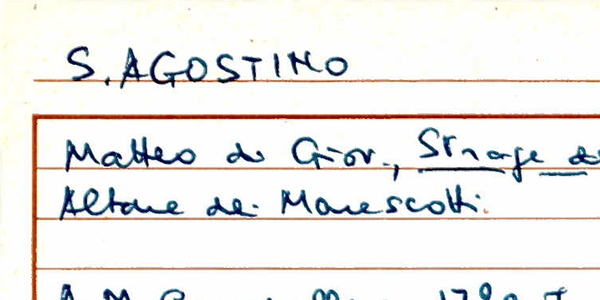 S. AGOSTINO
Matteo di Giov., Strage de
Altare dei Marescotti.